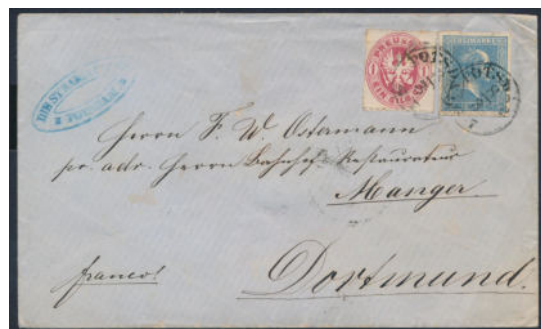 PREUSSEN
1
EIN SILB
FREIMARKE
POTSDAM
POTSDAM
Herrn F. W. Ostermann
pr. adr. Herrn Bahnhofs-Restaurateur
Manger
franco!
Dortmund.